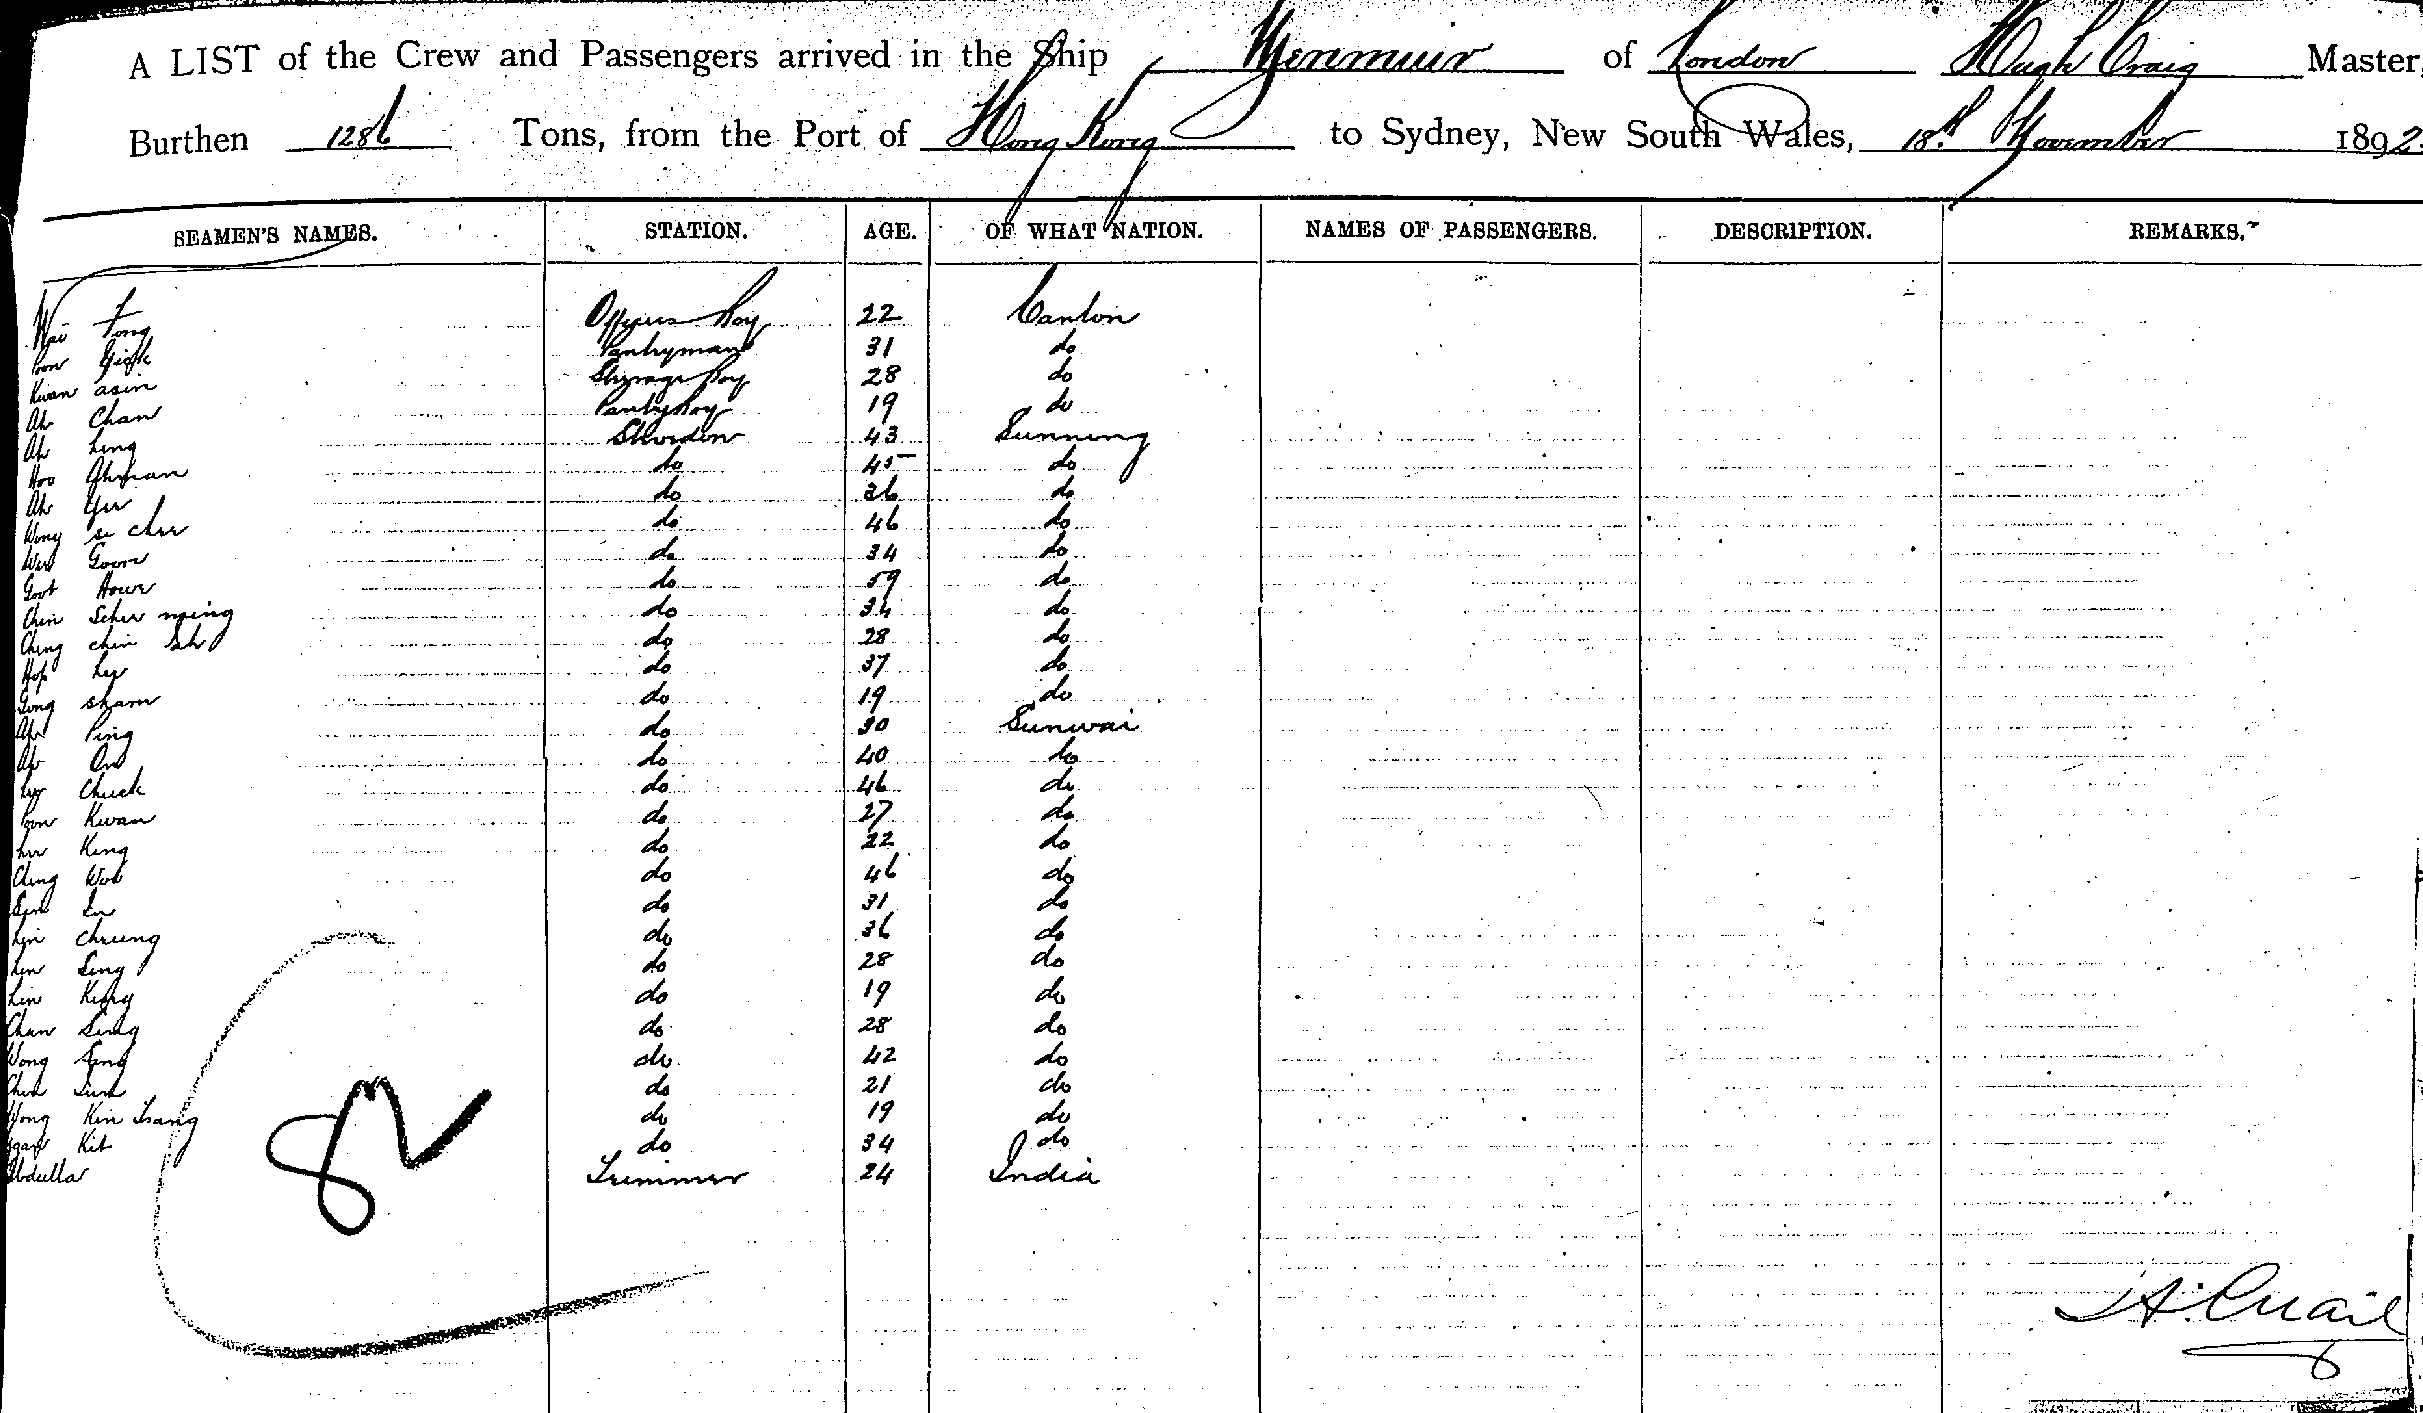 A LIST of the Crew and Passengers arrived in the Ship Menmuir of London Hugh Craig Master,
Burthen 1286 Tons, from the Port of Hong Kong to Sydney, New South Wales, 18th November 1892.
SEAMEN'S NAMES. STATION. AGE. OF WHAT NATION. NAMES OF PASSENGERS. DESCRIPTION. REMARKS.
Wai Fong Officers Boy 22 Canton
Poon Pantryman 31 do
Kwan asin Steerage Boy 28 do
Ah Chan Pantryboy 19 do
Ah Ling 43 Sunning
Hoo Ahman do 45 do
Ah Yee do 36 do
Wong se chee do 46 do
Goon do 34 do
Goot Howe do 59 do
Chin do 34 do
Ching chin do 28 do
Hop Ley do 37 do
Gong sham do 19 do
Ah Ping do 30 Sunwai
Ah On do 40 do
Ley Chuck do 46 do
Poon Kwan do 27 do
Lee King do 22 do
Ching Wob do 46 do
do 31 do
Lin Cheung do 36 do
Lin Sing do 28 do
Lin King do 19 do
Chan Sing do 28 do
Wong Sing do 42 do
do 21 do
Wong Kin Tsang do 19 do
Kit do 34 do
Abdulla Trimmer 24 India
82
H. Quail